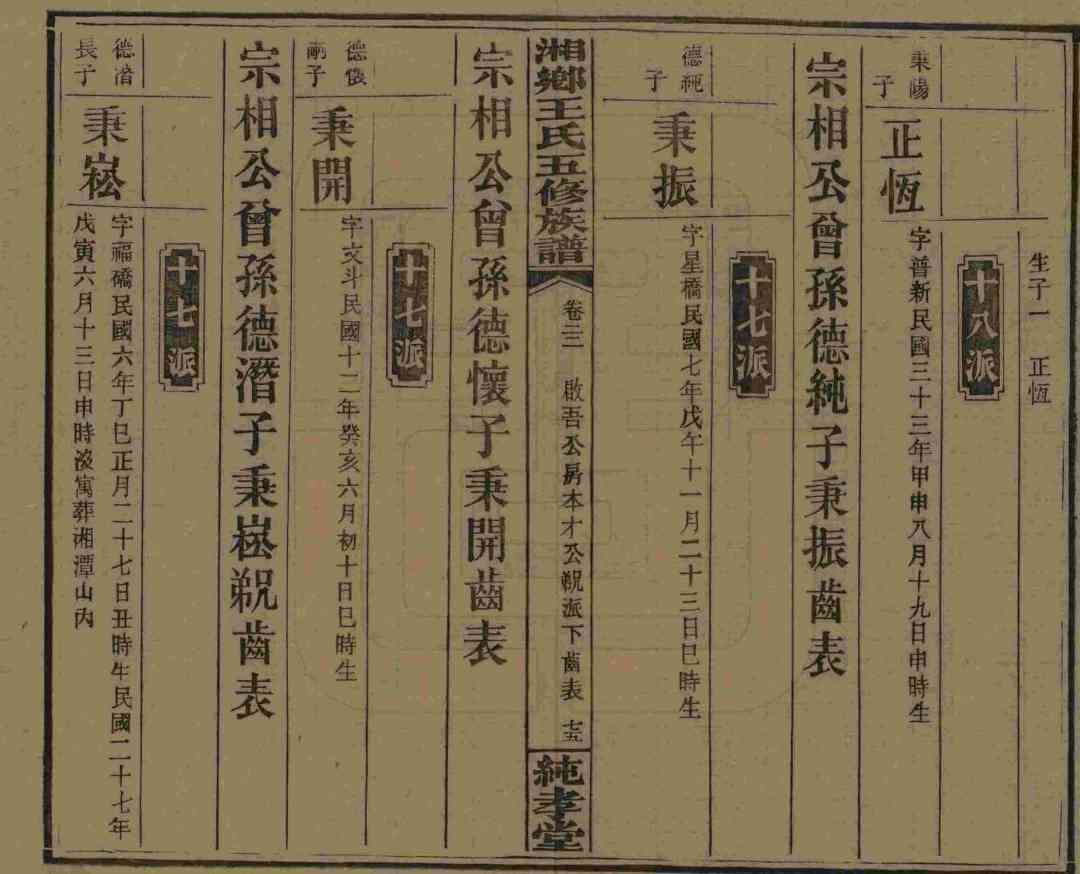 生子一　正恆
十八派
秉陽子
正恆
字普新民國三十三年甲申八月十九日申時生
宗相公曾孫德純子秉振齒表
十七派
德純子
秉振
字星橋民國七年戊午十一月二十三日巳時生
湘鄉王氏五修族譜
卷三三　啟吾公房本才公䙷派下齒表　七五
純孝堂
宗相公曾孫德懷子秉開齒表
十七派
德懷嗣子
秉開
字文斗民國十二年癸亥六月初十日巳時生
宗相公曾孫德潛子秉崧䙷齒表
十七派
德潛長子
秉崧
字福礄民國六年丁巳正月二十七日丑時生民國二十七年
戊寅六月十三日申時沒寓葬湘潭山內